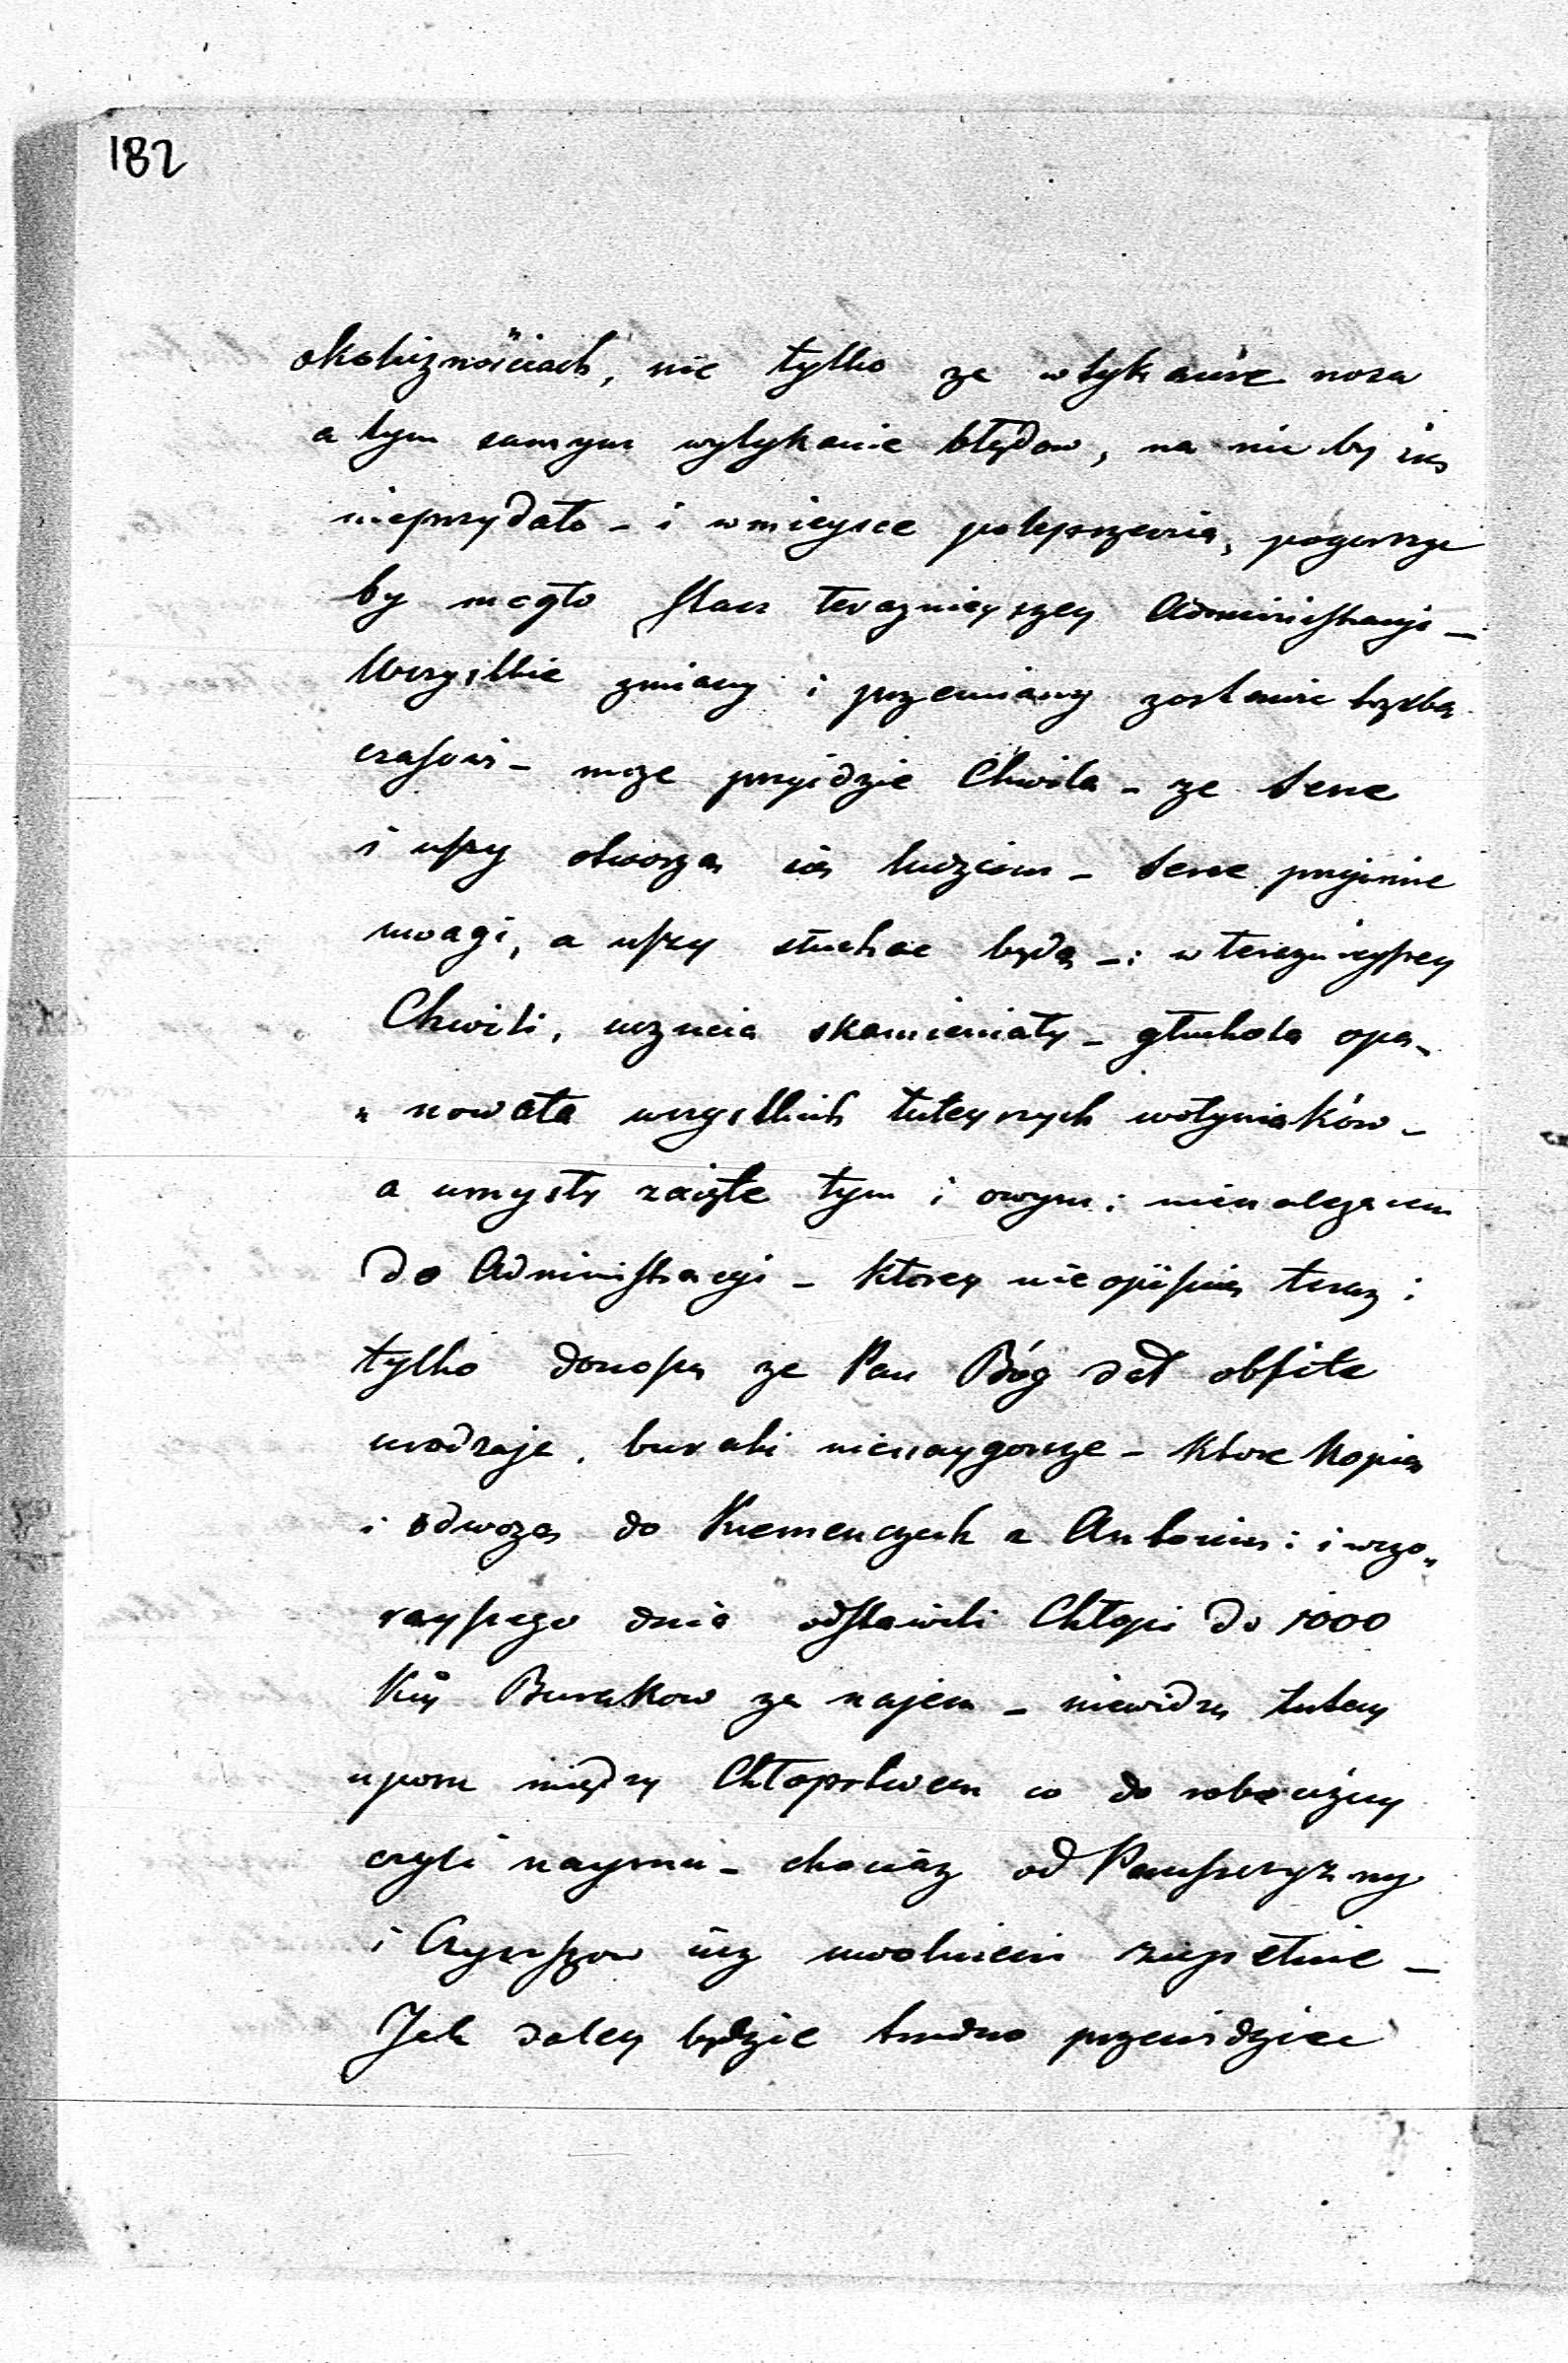 182
okolicznościach, nie tylko ze wtykanie nosa
a tym samym wytykanie błędow, na nic by się
nieprzydało - i wmieysce polepszenia, pogorszyć
by mogło stan teraznieyszey Administracyi -
Wszystkie zmiany i przemiany zostawic trzeba
czasowi - moze przyidzie Chwila - ze Serce
i uszy otworzą się ludziom - Serce przyimie
uwagi, a uszy słuchac będą -: w teraznieyszey
Chwili, uczucia skamieniały - głuchota opa„
„ nowała wszystkich tuteyszych wołyniaków -
a umysły zaięte tym i owym: nienalezącem
do Administracyi - ktorey nieopiszię teraz:
tylko donoszę ze Pan Bóg dał obfite
urodzaje, buraki nienaygorsze - ktore kopią
i odwozą do Kremenczuk a Antonin: i wczo„
rayszego dnia odstawili Chłopi do 1000
Kię Burakow za najem - niewidzę tutey
uporu między Chłopstwem co do robocizny
czyli naymu - chociaz od Panszczyzny
i Czynszow iuz uwolnieni zupełnie -
Jak daley będzie trudno przewidziec